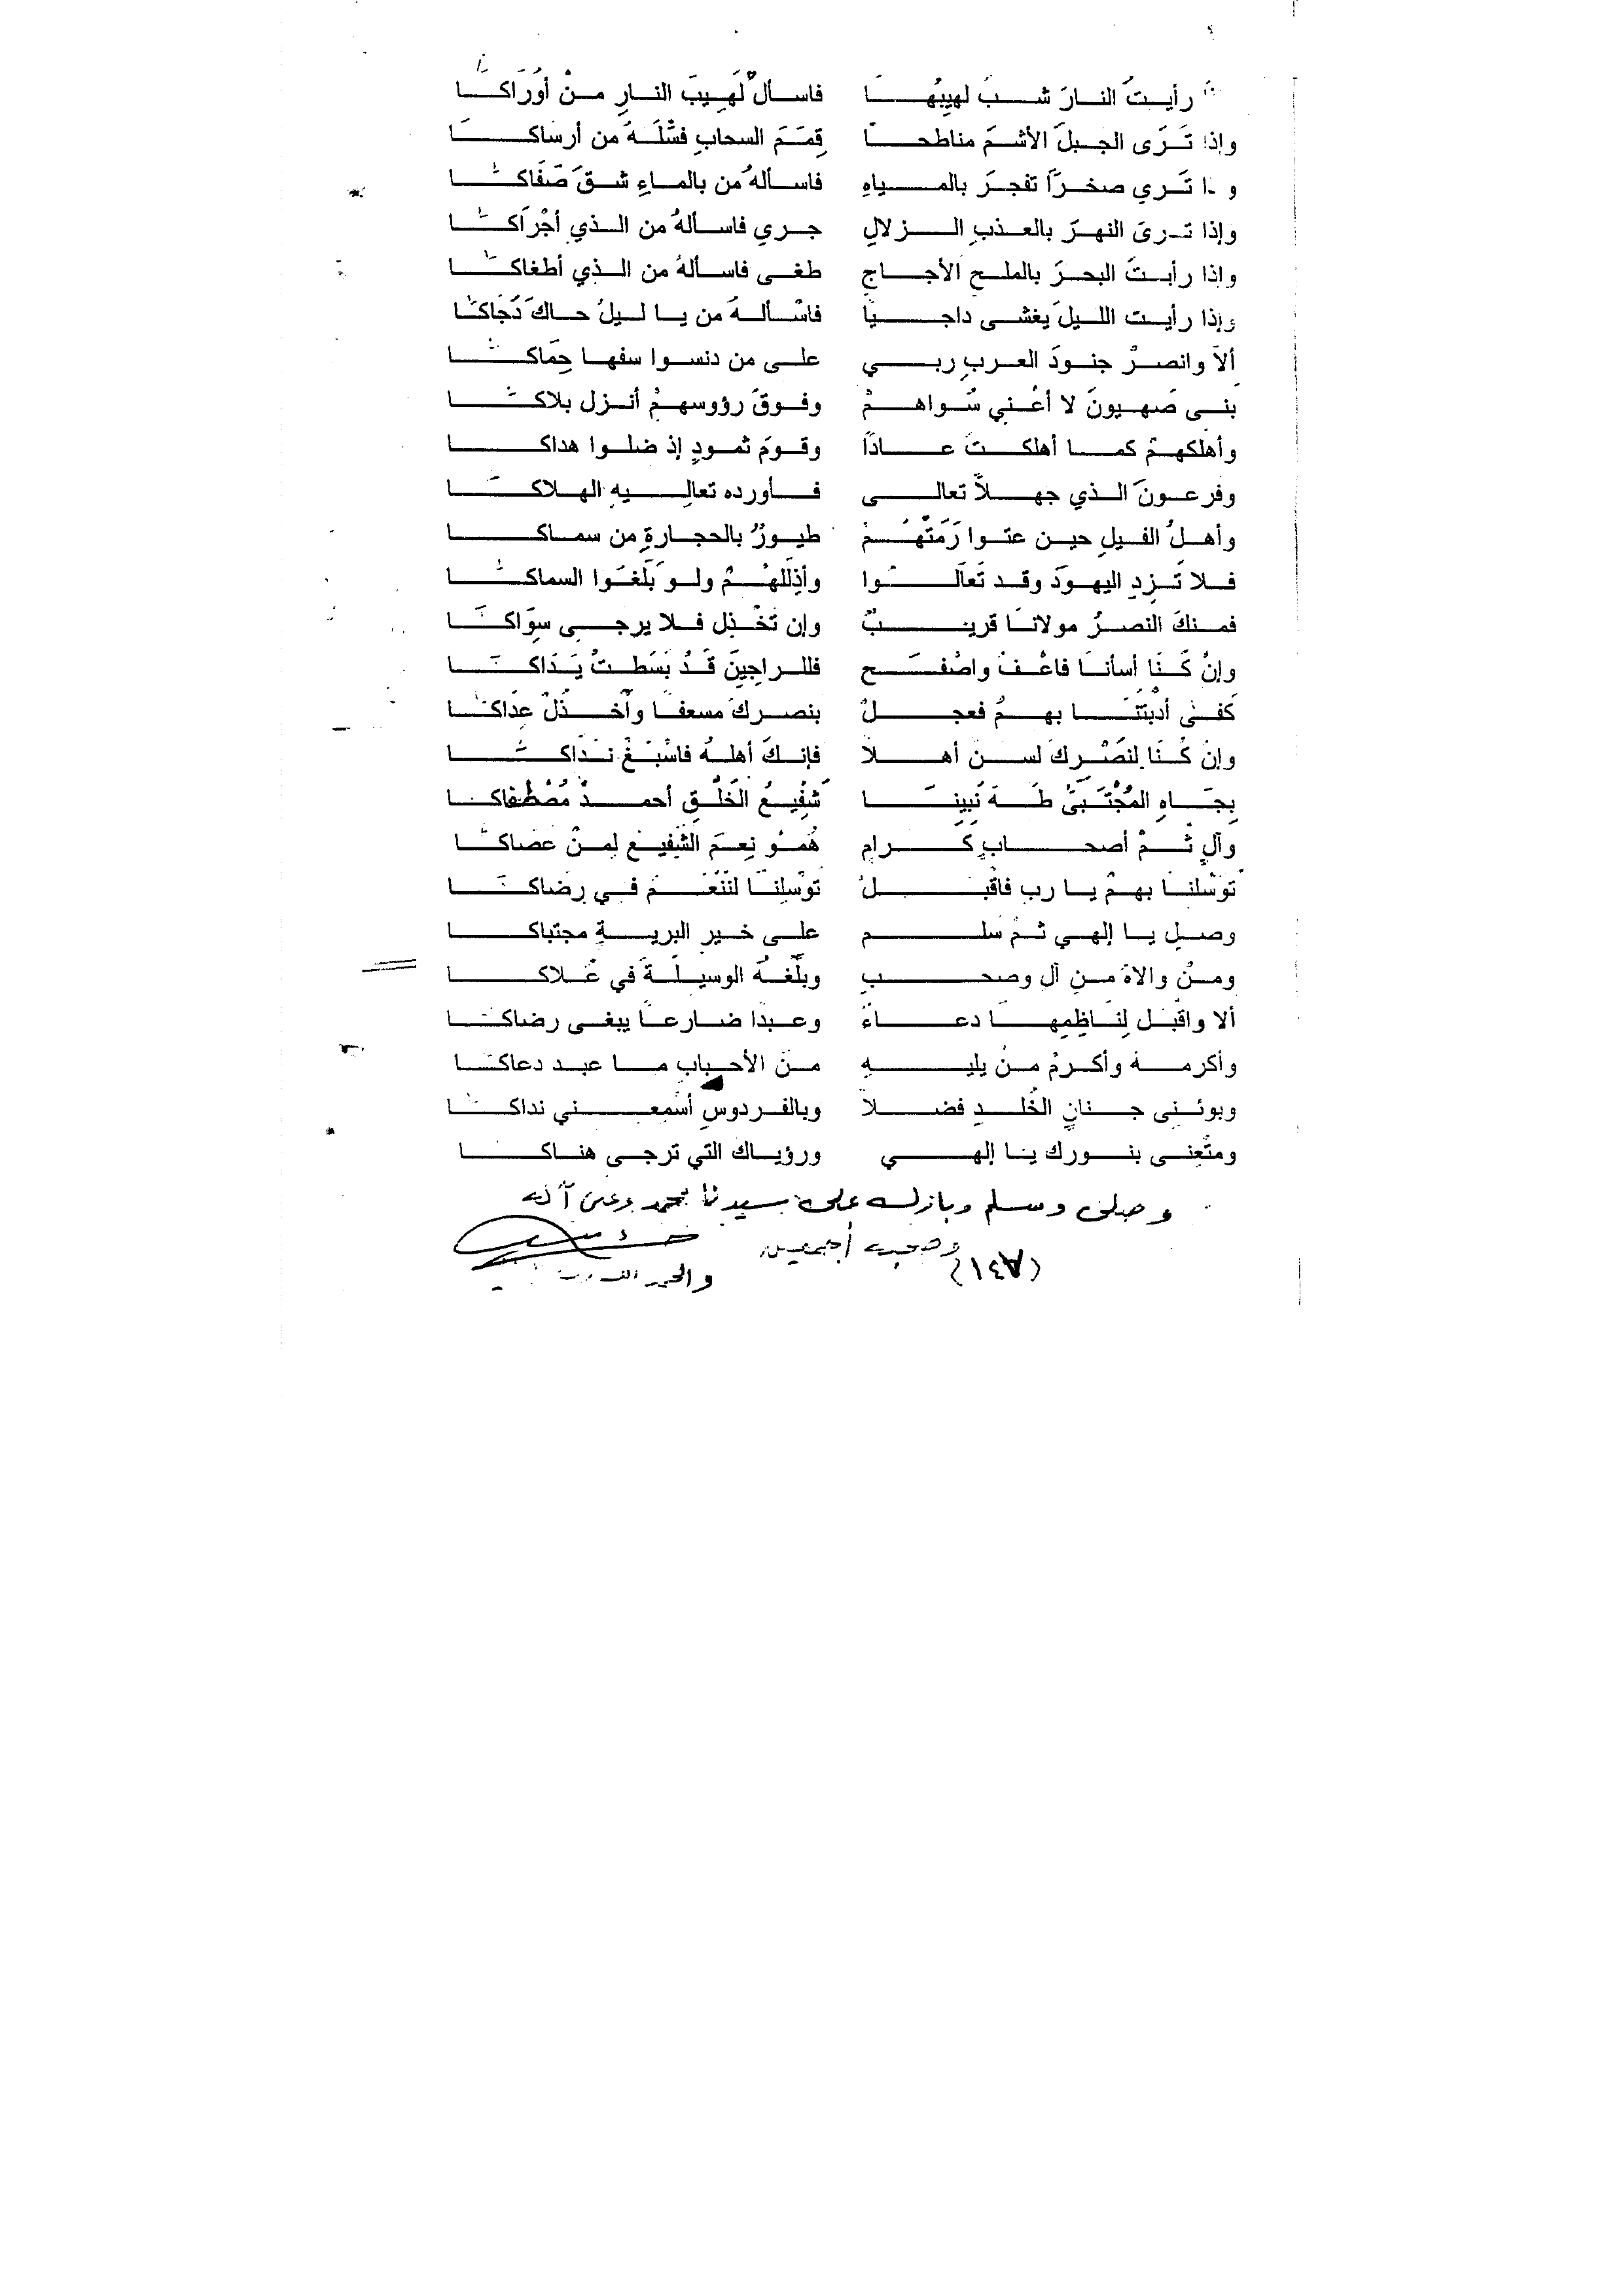 رأيت النار شب لهيبها فاسأل لهيب النار من أوراكا
وإذا ترى الجبل الأشم مناطحا قمم السحاب فسله من أرساكا
ترى صخرا تفجر بالمياه فاسأله من بالماء شق صفاكا
وإذا ترى النهر بالعذب الزلال جرى فاسأله من الذي أجراكا
وإذا رأيت البحر بالملح الأجاج طغى فاسأله من الذي أطغاكا
وإذا رأيت الليل يغشى داجيا فاسأله من يا ليل حاك دجاكا
ألا وانصر جنود العرب ربي على من دنسوا سفها حماكا
بني صهيون لا أعني سواهم وفوق رؤوسهم أنزل بلاكا
وأهلكهم كما أهلكت عادا وقوم ثمود إذ ضلوا هداكا
وفرعون الذي جهلا تعالى فأورده تعاليه الهلاكا
وأهل الفيل حين عتوا رمتهم طيور بالحجارة من سماكا
فلا تزد اليهود وقد تعالوا وأذللهم ولو بلغوا السماكا
فمنك النصر مولانا قريب وإن تخذل فلا يرجى سواكا
وإن كنا أسأنا فاعف واصفح فللراجين قد بسطت يداكا
كفى أدبتنا بهم فعجل بنصرك مسعفا وأخذل عداكا
وإن كنا لنصرك لسن أهلا فإنك أهله فاسبغ نداكا
بجاه المجتبى طه نبينا شفيع الخلق أحمد مصطفاكا
وآل ثم أصحاب كرام همو نعم الشفيع لمن عصاكا
توسلنا بهم يا رب فاقبل توسلنا لننعم في رضاكا
وصل يا إلهي ثم سلم على خير البرية مجتباكا
ومن والاه من آل وصحب وبلغه الوسيلة في علاكا
ألا واقبل لناظمها دعاء وعبدا ضارعا يبغى رضاكا
وأكرمه وأكرم من يليه من الأحباب ما عبد دعاكا
وبوئنى جنان الخلد فضلا وبالفردوس أسمعني نداكا
ومتعنى بنورك يا إلهي ورؤياك التي ترجى هناكا
وصلى وسلم وبارك على سيدنا محمد وعلى آله
وصحبه أجمعين
(١٤٧) والحمد لله